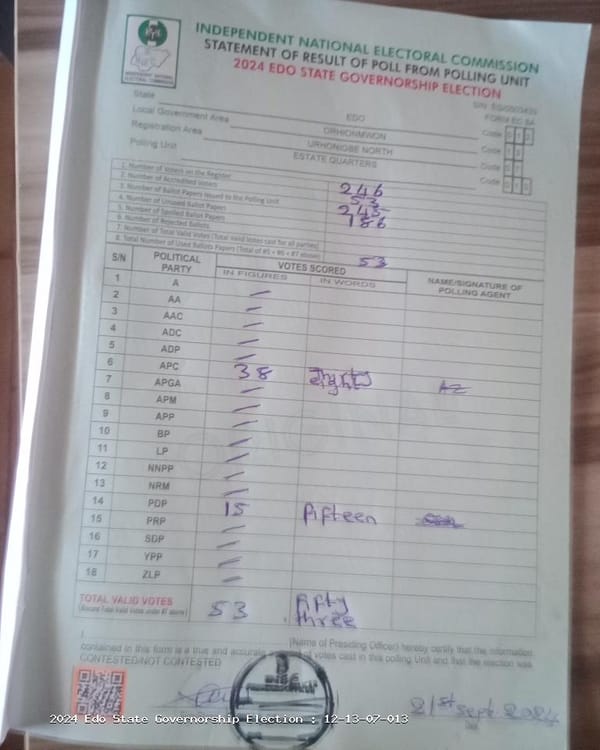 INDEPENDENT NATIONAL ELECTORAL COMMISSION
STATEMENT OF RESULT OF POLL FROM POLLING UNIT
2024 EDO STATE GOVERNORSHIP ELECTION
FORM EC 8A
State EDO Code
Local Government Area ORHIONMWON Code
Registration Area URHONIGBE NORTH Code
Polling Unit ESTATE QUARTERS Code
1. Number of Voters on the Register 246
2. Number of Accredited Voters 53
3. Number of Ballot Papers Issued to the Polling Unit
4. Number of Unused Ballot Papers 186
5. Number of Spoiled Ballot Papers
6. Number of Rejected Ballots
7. Number of Total Valid Votes (Total Valid Votes cast for all parties)
8. Total Number of Used Ballots Papers (Total of #5 + #6 + #7 above) 53
S/N POLITICAL PARTY VOTES SCORED NAME/SIGNATURE OF POLLING AGENT
IN FIGURES IN WORDS
1 A
2 AA
3 AAC
4 ADC
5 ADP
6 APC 38 Thirty eight
7 APGA
8 APM
9 APP
10 BP
11 LP
12 NNPP
13 NRM
14 PDP 15 Fifteen
15 PRP
16 SDP
17 YPP
18 ZLP
TOTAL VALID VOTES 53 Fifty three
(Name of Presiding Officer) hereby certify that the information
contained in this form is a true and accurate votes cast in this polling Unit and that the election was
CONTESTED/NOT CONTESTED
21st Sept. 2024
2024 Edo State Governorship Election : 12-13-07-013